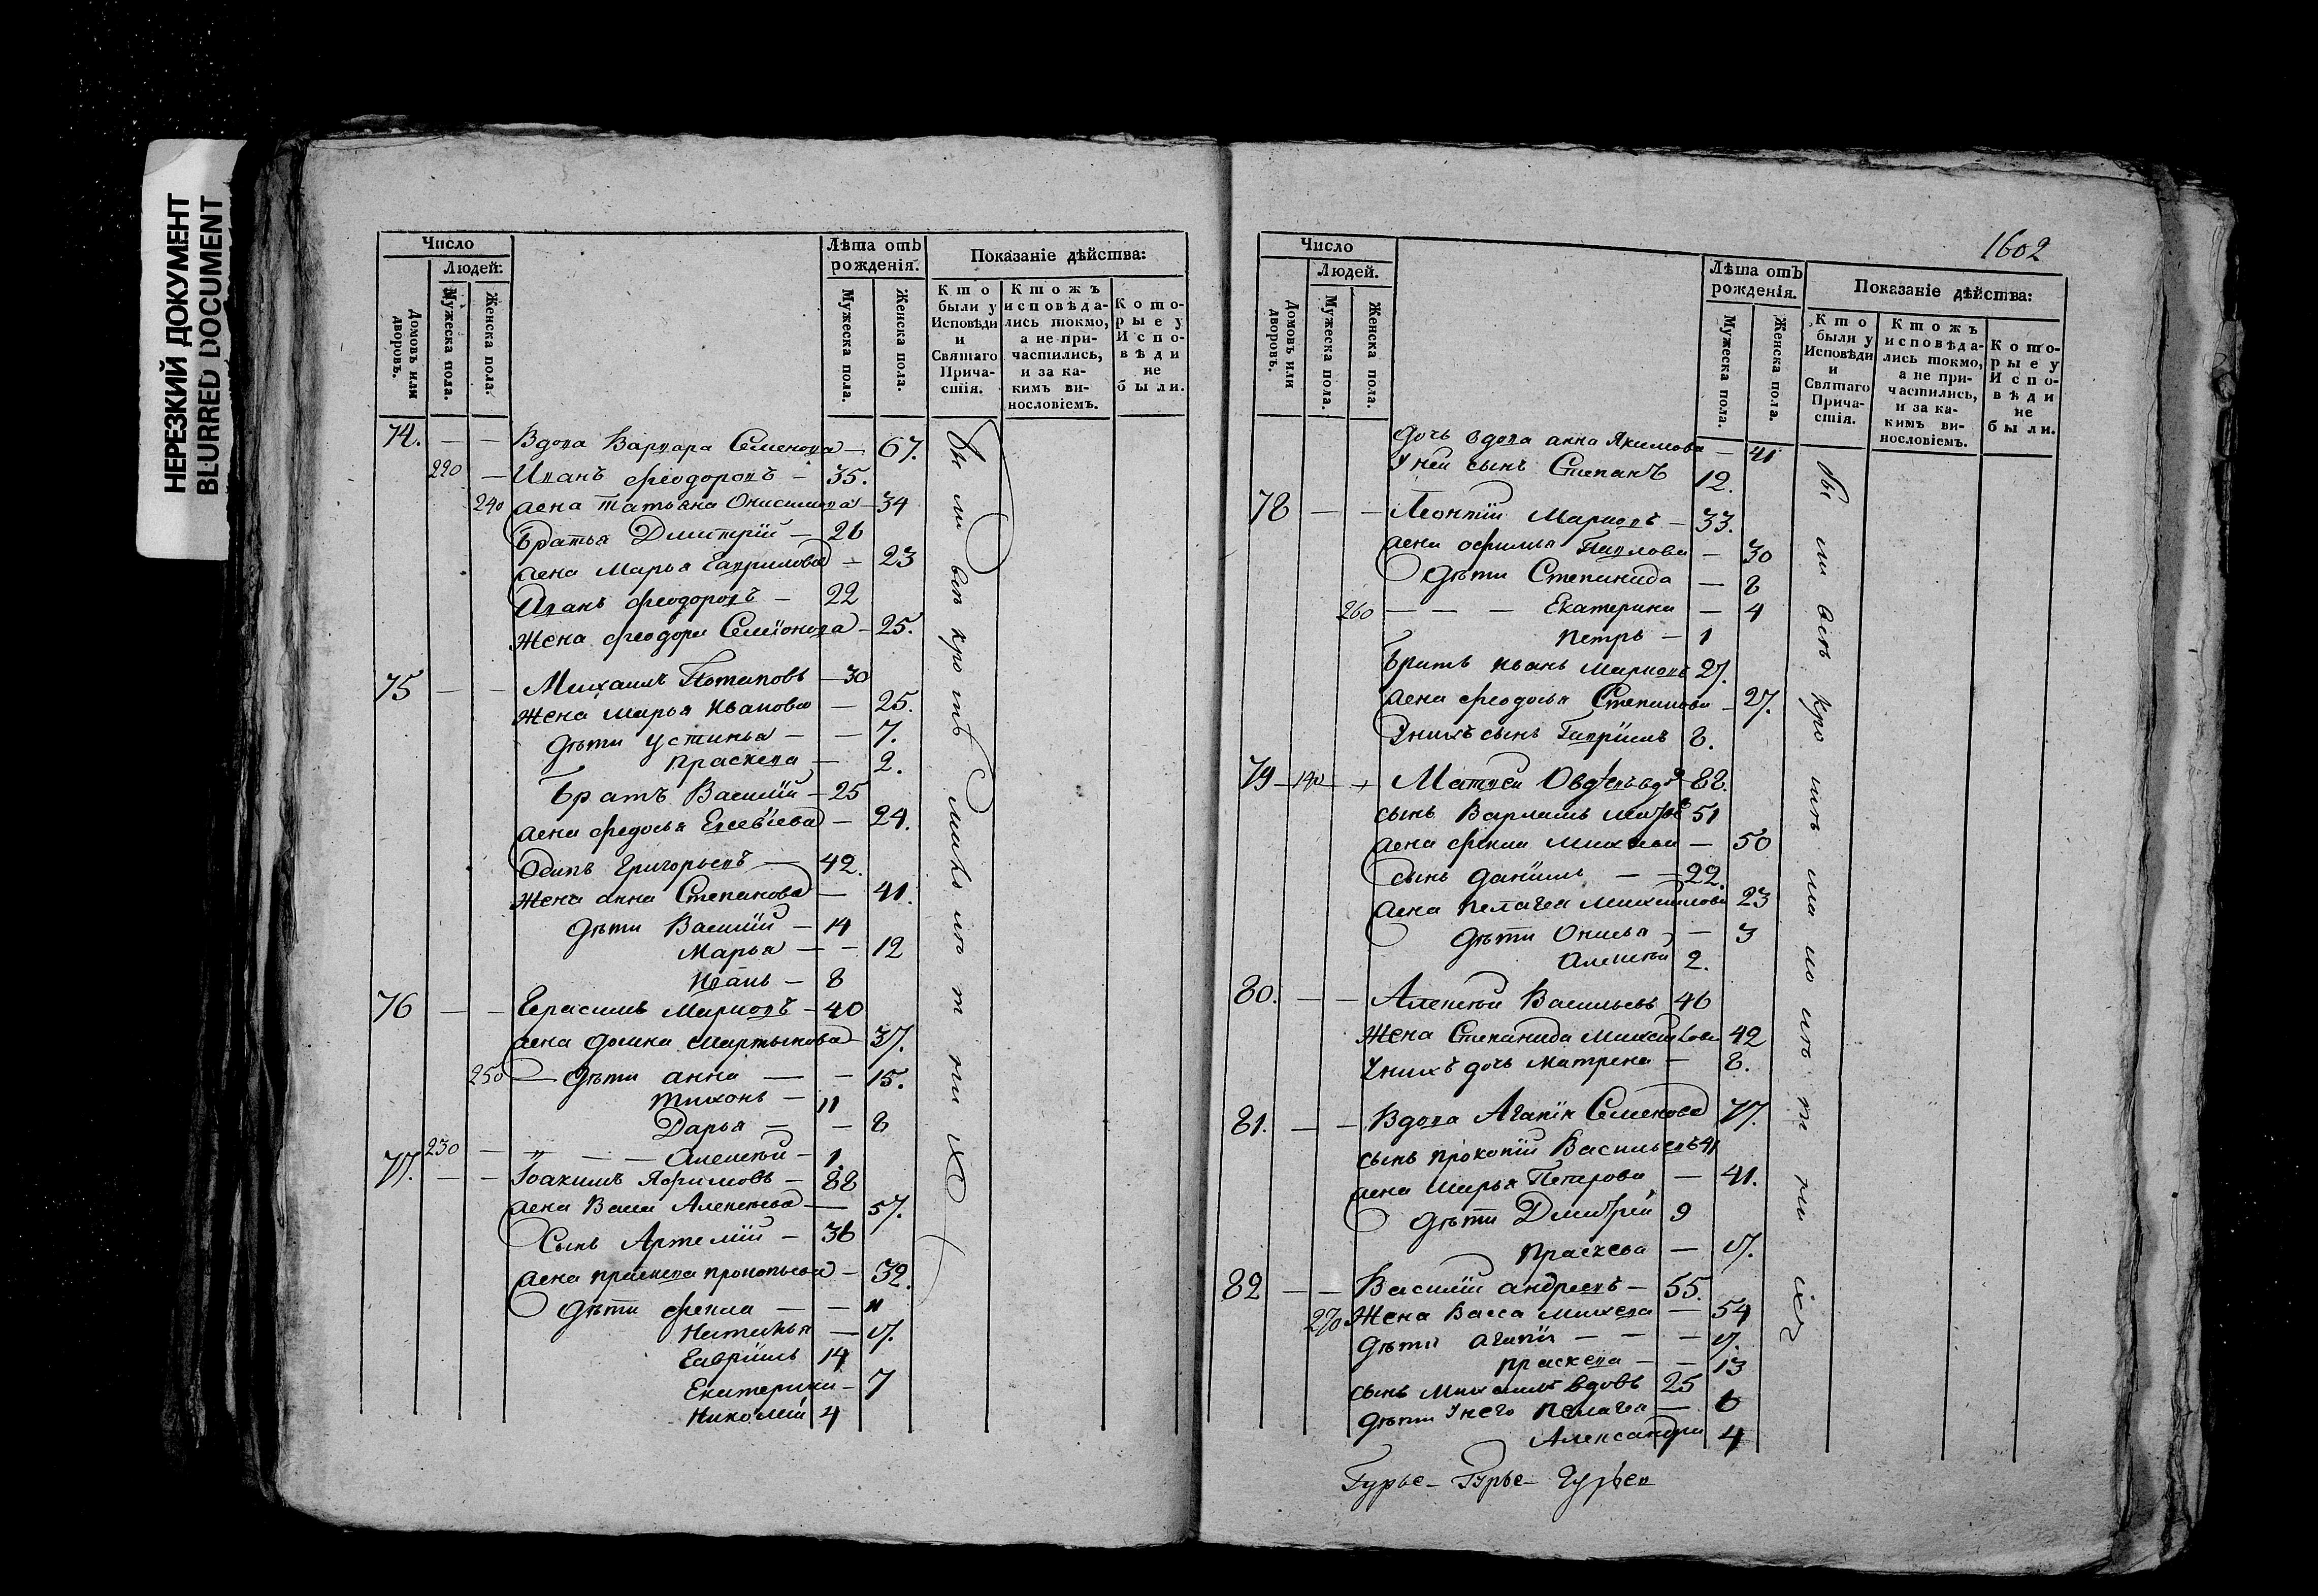 НЕРЕЗКИЙ ДОКУМЕНТ
BLURRED DOCUMENT
Число
Людей.
Домовъ или дворовъ.
Мужеска пола.
Женска пола.
Лѣта отъ рожденія.
Мужеска пола.
Женска пола.
Показаніе дѣйства:
Кто были у Исповѣди и Святаго Причастія.
Ктожъ исповѣдались токмо, а не причастились, и за какимъ винословіемъ.
Которые у Исповѣди не были.
74. — — Вдова Варвара Семенова — 67.
220 — Иванъ Феодоровъ — 35.
240 жена Татьяна Онисимова — 34
Братья Димитрій — 26
жена Марья Гаврилова — 23
Иванъ Феодоровъ — 22
Жена Феодора Семіонова — 25.
75 — — Михаилъ Потаповъ — 30
Жена Марья Иванова — 25.
дѣти Устинья — — 7.
Праскева — 2.
Братъ Василій — 25
жена Федосья Евсевіева — 24.
Осипъ Григорьевъ — 42.
Жена Анна Степанова — 41.
дѣти Василій — 14
Марья — — 12
Иванъ — 8
76 — — Герасимъ Марковъ — 40
жена Домна Мартынова — 37.
250 — дѣти Анна — — 15.
Тихонъ — 11
Дарья — — 8
230 — „ — — Алексѣй — 1.
77. — — Іоакимъ Яфимовъ — 88
жена Васса Алексѣева — 57.
Сынъ Артемій — 36
жена Праскева Прокопьева — 32.
дѣти Фекла — — 11
Наталья — 17.
Гавріилъ 14
Екатерина — 7
Николай 4
Были всѣ кромѣ малолѣтнихъ
1602
Число
Людей.
Домовъ или дворовъ.
Мужеска пола.
Женска пола.
Лѣта отъ рожденія.
Мужеска пола.
Женска пола.
Показаніе дѣйства:
Кто были у Исповѣди и Святаго Причастія.
Ктожъ исповѣдались токмо, а не причастились, и за какимъ винословіемъ.
Которые у Исповѣди не были.
дочь вдова Анна Якимова — 41
У неи сынъ Степанъ 12.
78 — — Леонтій Марковъ — 33.
жена Офимья Павлова — 30
дѣти Степанида — 8
260 — — — Екатерина — 4
Петръ — 1
Братъ Иванъ Марковъ 27.
жена Феодосья Степанова — 27.
У нихъ сынъ Гавріилъ 8.
79 — 140 — Матвей — 88.
сынъ Варламъ 51
жена Фекла — 50
сынъ Даніилъ — — 22.
жена Пелагея Михаилова 23
дѣти — 3
Алексѣй 2.
80. — — Алексѣй Васильевъ 46
Жена Степанида Михаилова 42
У нихъ дочь Матрена — 8.
81. — — Вдова Агапія Семенова 77.
сынъ Прокопій Васильевъ 41
жена Марья Петрова — 41.
дѣти Дмитрій 9
Праскева — 17.
82 — — Василій Андреевъ — 55.
270 Жена Васса — 54
дѣти Агапія — — — 17.
Праскева — — 13
сынъ Михаилъ вдовъ 25
дѣти У него Пелагея — 6
Александра 4
Были всѣ кромѣ малолѣтнихъ